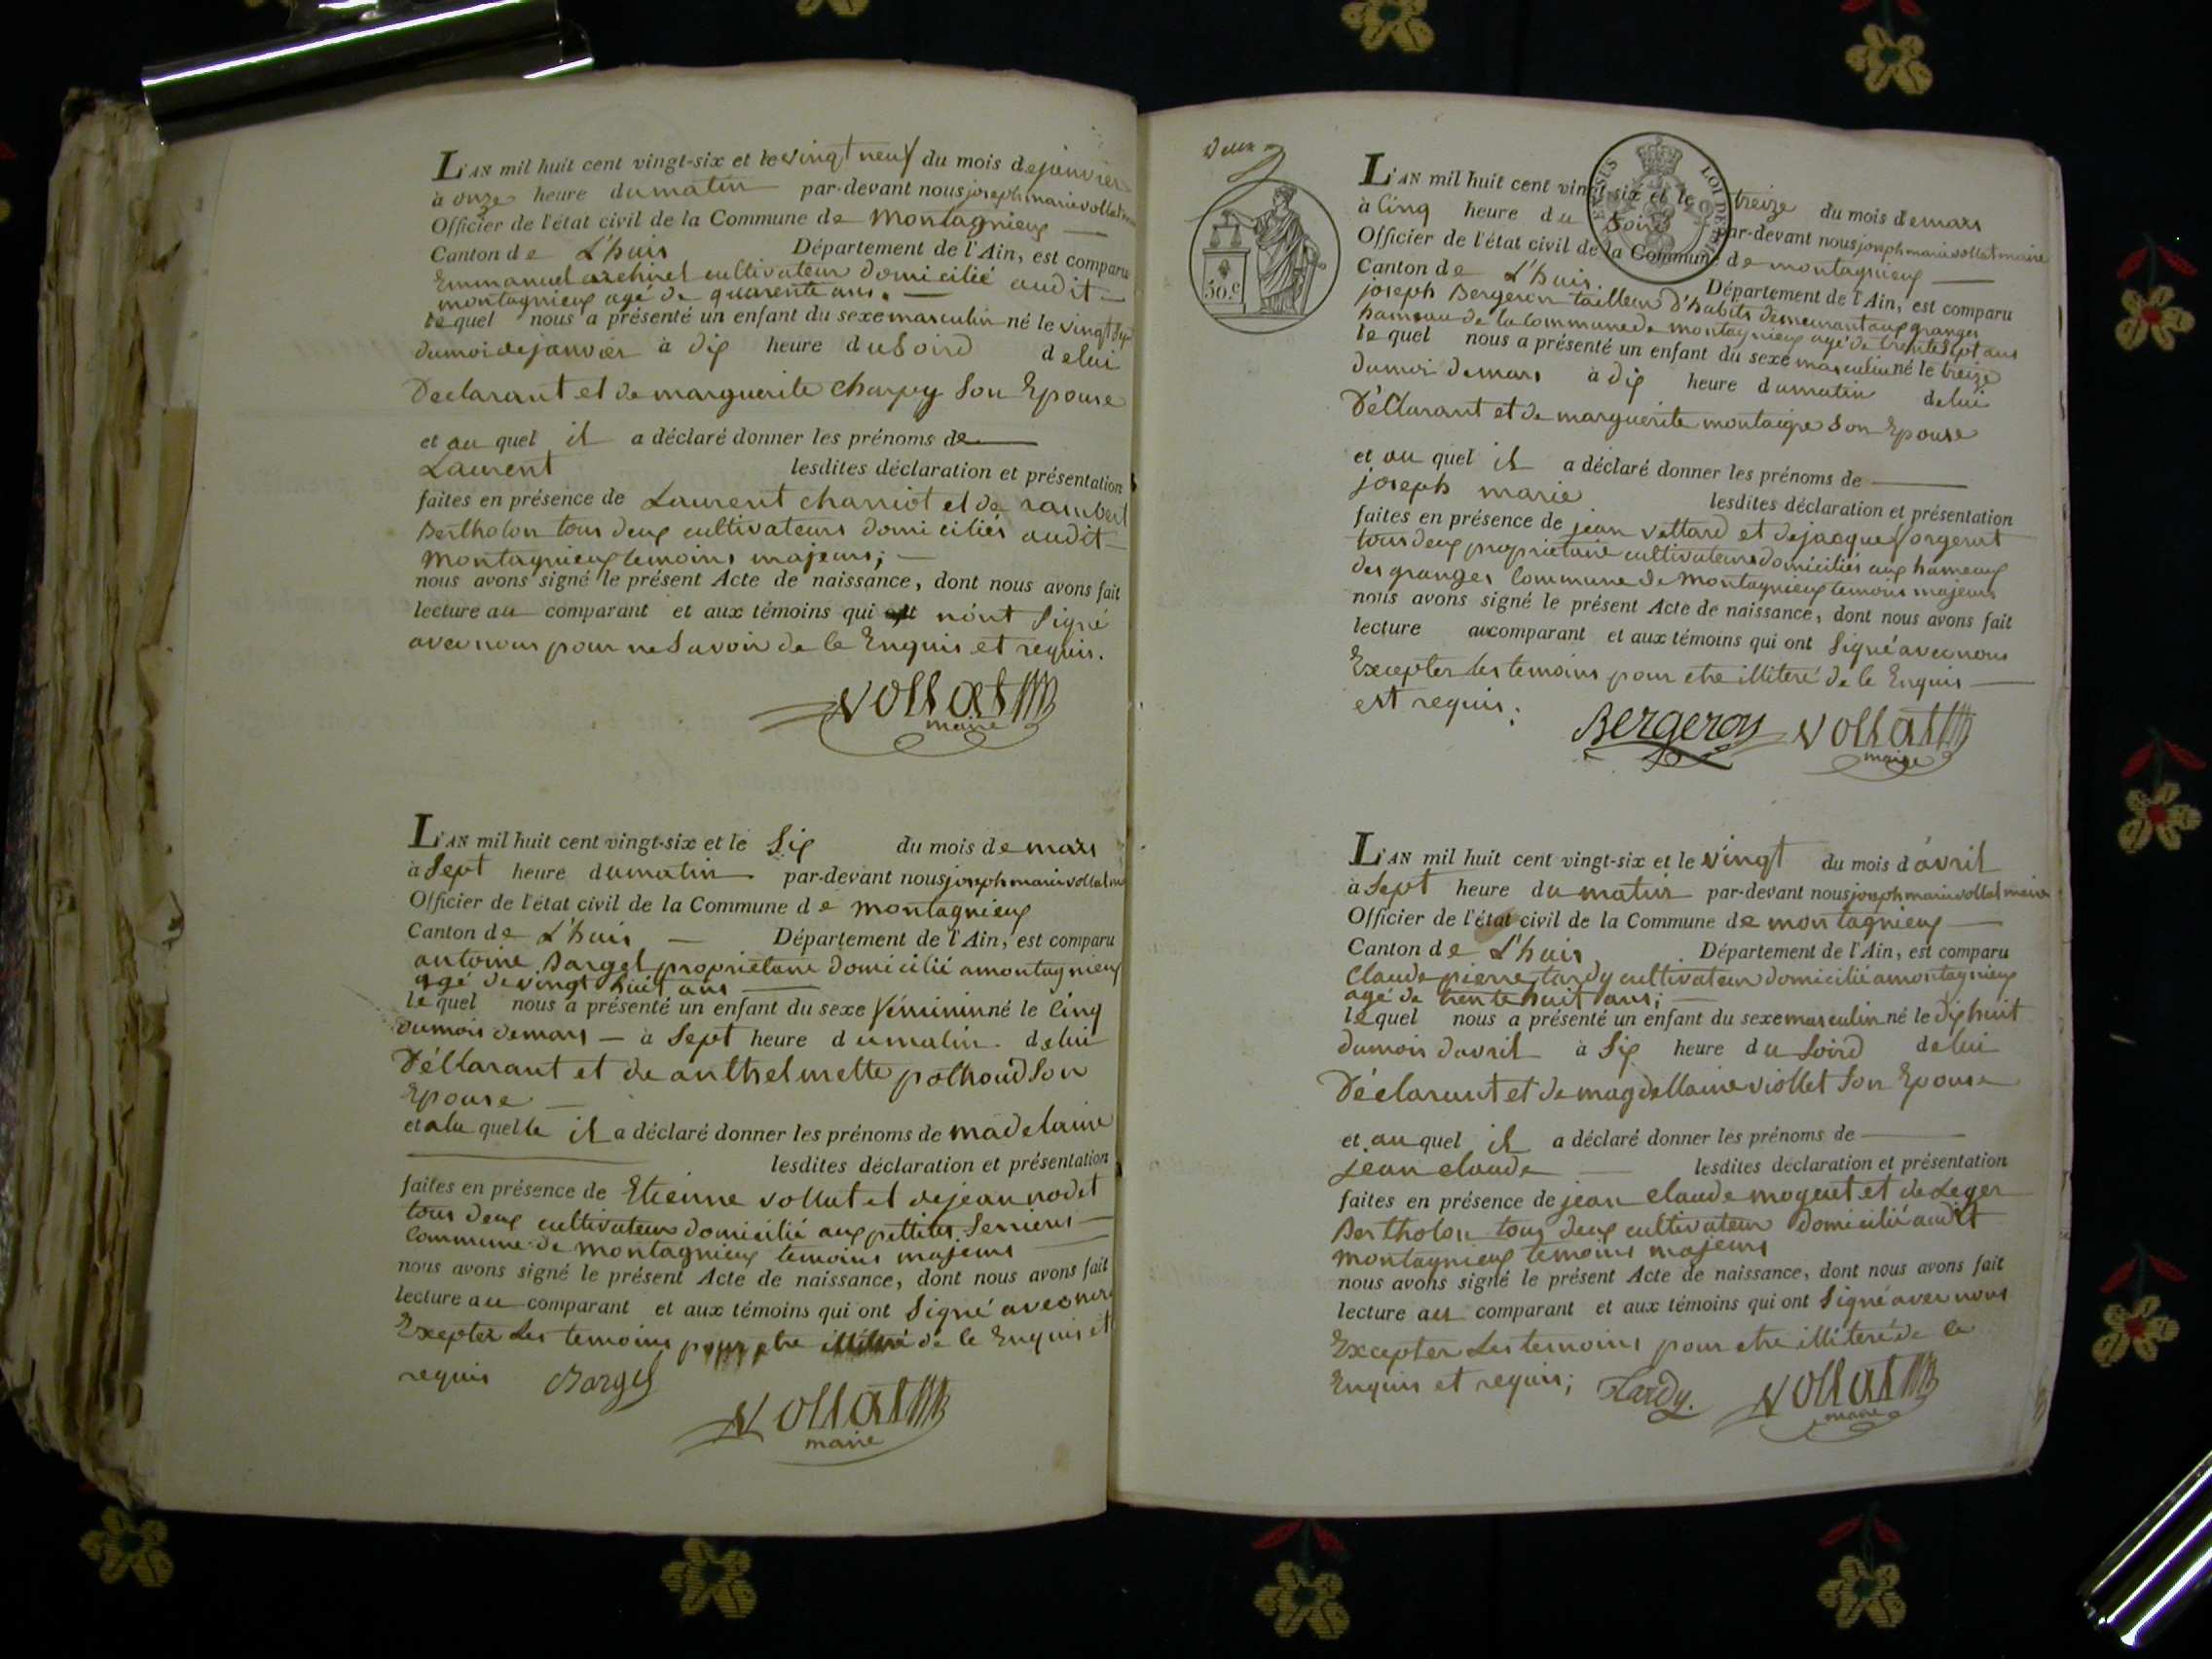 L'AN mil huit cent vingt-six et le vingt neuf du mois de janvier
à onze heure du matin par-devant nous joseph marie vollat
Officier de l'état civil de la Commune de Montagnieux
Canton de L'huis Département de l'Ain, est comparu
Emmanuel cultivateur domicilié audit
montagnieux agé de quarente ans.
le quel nous a présenté un enfant du sexe masculin né le vingt
du moi de janvier à dix heure du Soird de lui
Déclarant et de marguerite charpy Son Epouse
et au quel il a déclaré donner les prénoms de
Laurent lesdites déclaration et présentation
faites en présence de Laurent charriot et de rambert
Bertholon tous deux cultivateurs domiciliés audit
Montagnieux temoins majeurs;
nous avons signé le présent Acte de naissance, dont nous avons fait
lecture au comparant et aux témoins qui n'ont Signé
avec nous pour ne Savoir de le Enquis et requis.
Vollat
maire
L'AN mil huit cent vingt-six et le Six du mois de mars
à Sept heure du matin par-devant nous joseph marie vollat
Officier de l'état civil de la Commune de montagnieux
Canton de L'huis Département de l'Ain, est comparu
antoine Barget propriétaire Domicilié a montagnieux
agé de vingt huit ans
le quel nous a présenté un enfant du sexe féminin né le Cinq
du mois de mars à Sept heure du matin de lui
Déclarant et de anthelmette pothoud Son
Epouse
et a la quelle il a déclaré donner les prénoms de madelaine
lesdites déclaration et présentation
faites en présence de Etienne vollat et de jean nodet
tous deux cultivateurs domicilié aux pettites Serrieres
Commune de montagnieux temoins majeurs
nous avons signé le présent Acte de naissance, dont nous avons fait
lecture au comparant et aux témoins qui ont Signé avec nous
Excepter Les temoins pour etre illiteré de le Enquis et
requis Barget
Vollat
maire
Deux
50.c
LOI DE
L'AN mil huit cent vingt-six et le treize du mois de mars
à Cinq heure du Soird par-devant nous joseph marie vollat maire
Officier de l'état civil de la Commune de montagnieux
Canton de L'huis. Département de l'Ain, est comparu
joseph Bergeron tailleur D'habits demeurant aux granges
hameau de la Commune de montagnieux agé de trente Sept ans
le quel nous a présenté un enfant du sexe masculin né le treize
du moi de mars à dix heure du matin de lui
Déclarant et de marguerite montaigre Son Epouse
et au quel il a déclaré donner les prénoms de
joseph marie lesdites déclaration et présentation
faites en présence de jean vettard et de jacque forgerat
tous deux propriétaire cultivateurs domiciliés aux hameaux
des granges Commune de Montagnieux temoins majeurs
nous avons signé le présent Acte de naissance, dont nous avons fait
lecture au comparant et aux témoins qui ont Signé avec nous
Excepter les temoins pour etre illiteré de le Enquis
est requis;
Bergeron Vollat
maire
L'AN mil huit cent vingt-six et le vingt du mois d'avril
à Sept heure du matin par-devant nous joseph marie vollat maire
Officier de l'état civil de la Commune de montagnieux
Canton de L'huis Département de l'Ain, est comparu
Claude pierre tardy cultivateur domicilié a montagnieux
agé de trente huit ans;
le quel nous a présenté un enfant du sexe masculin né le dix huit
du mois d'avril à Six heure du Soird de lui
Déclarant et de magdellaine viollet Son Epouse
et au quel il a déclaré donner les prénoms de
jean claude lesdites déclaration et présentation
faites en présence de jean Claude mogeut et de Leger
Bertholon tous deux cultivateur domicilié audit
montagnieux temoins majeurs
nous avons signé le présent Acte de naissance, dont nous avons fait
lecture au comparant et aux témoins qui ont Signé avec nous
Excepter Les temoins pour etre illiteré de le
Enquis et requis; Tardy. Vollat
maire